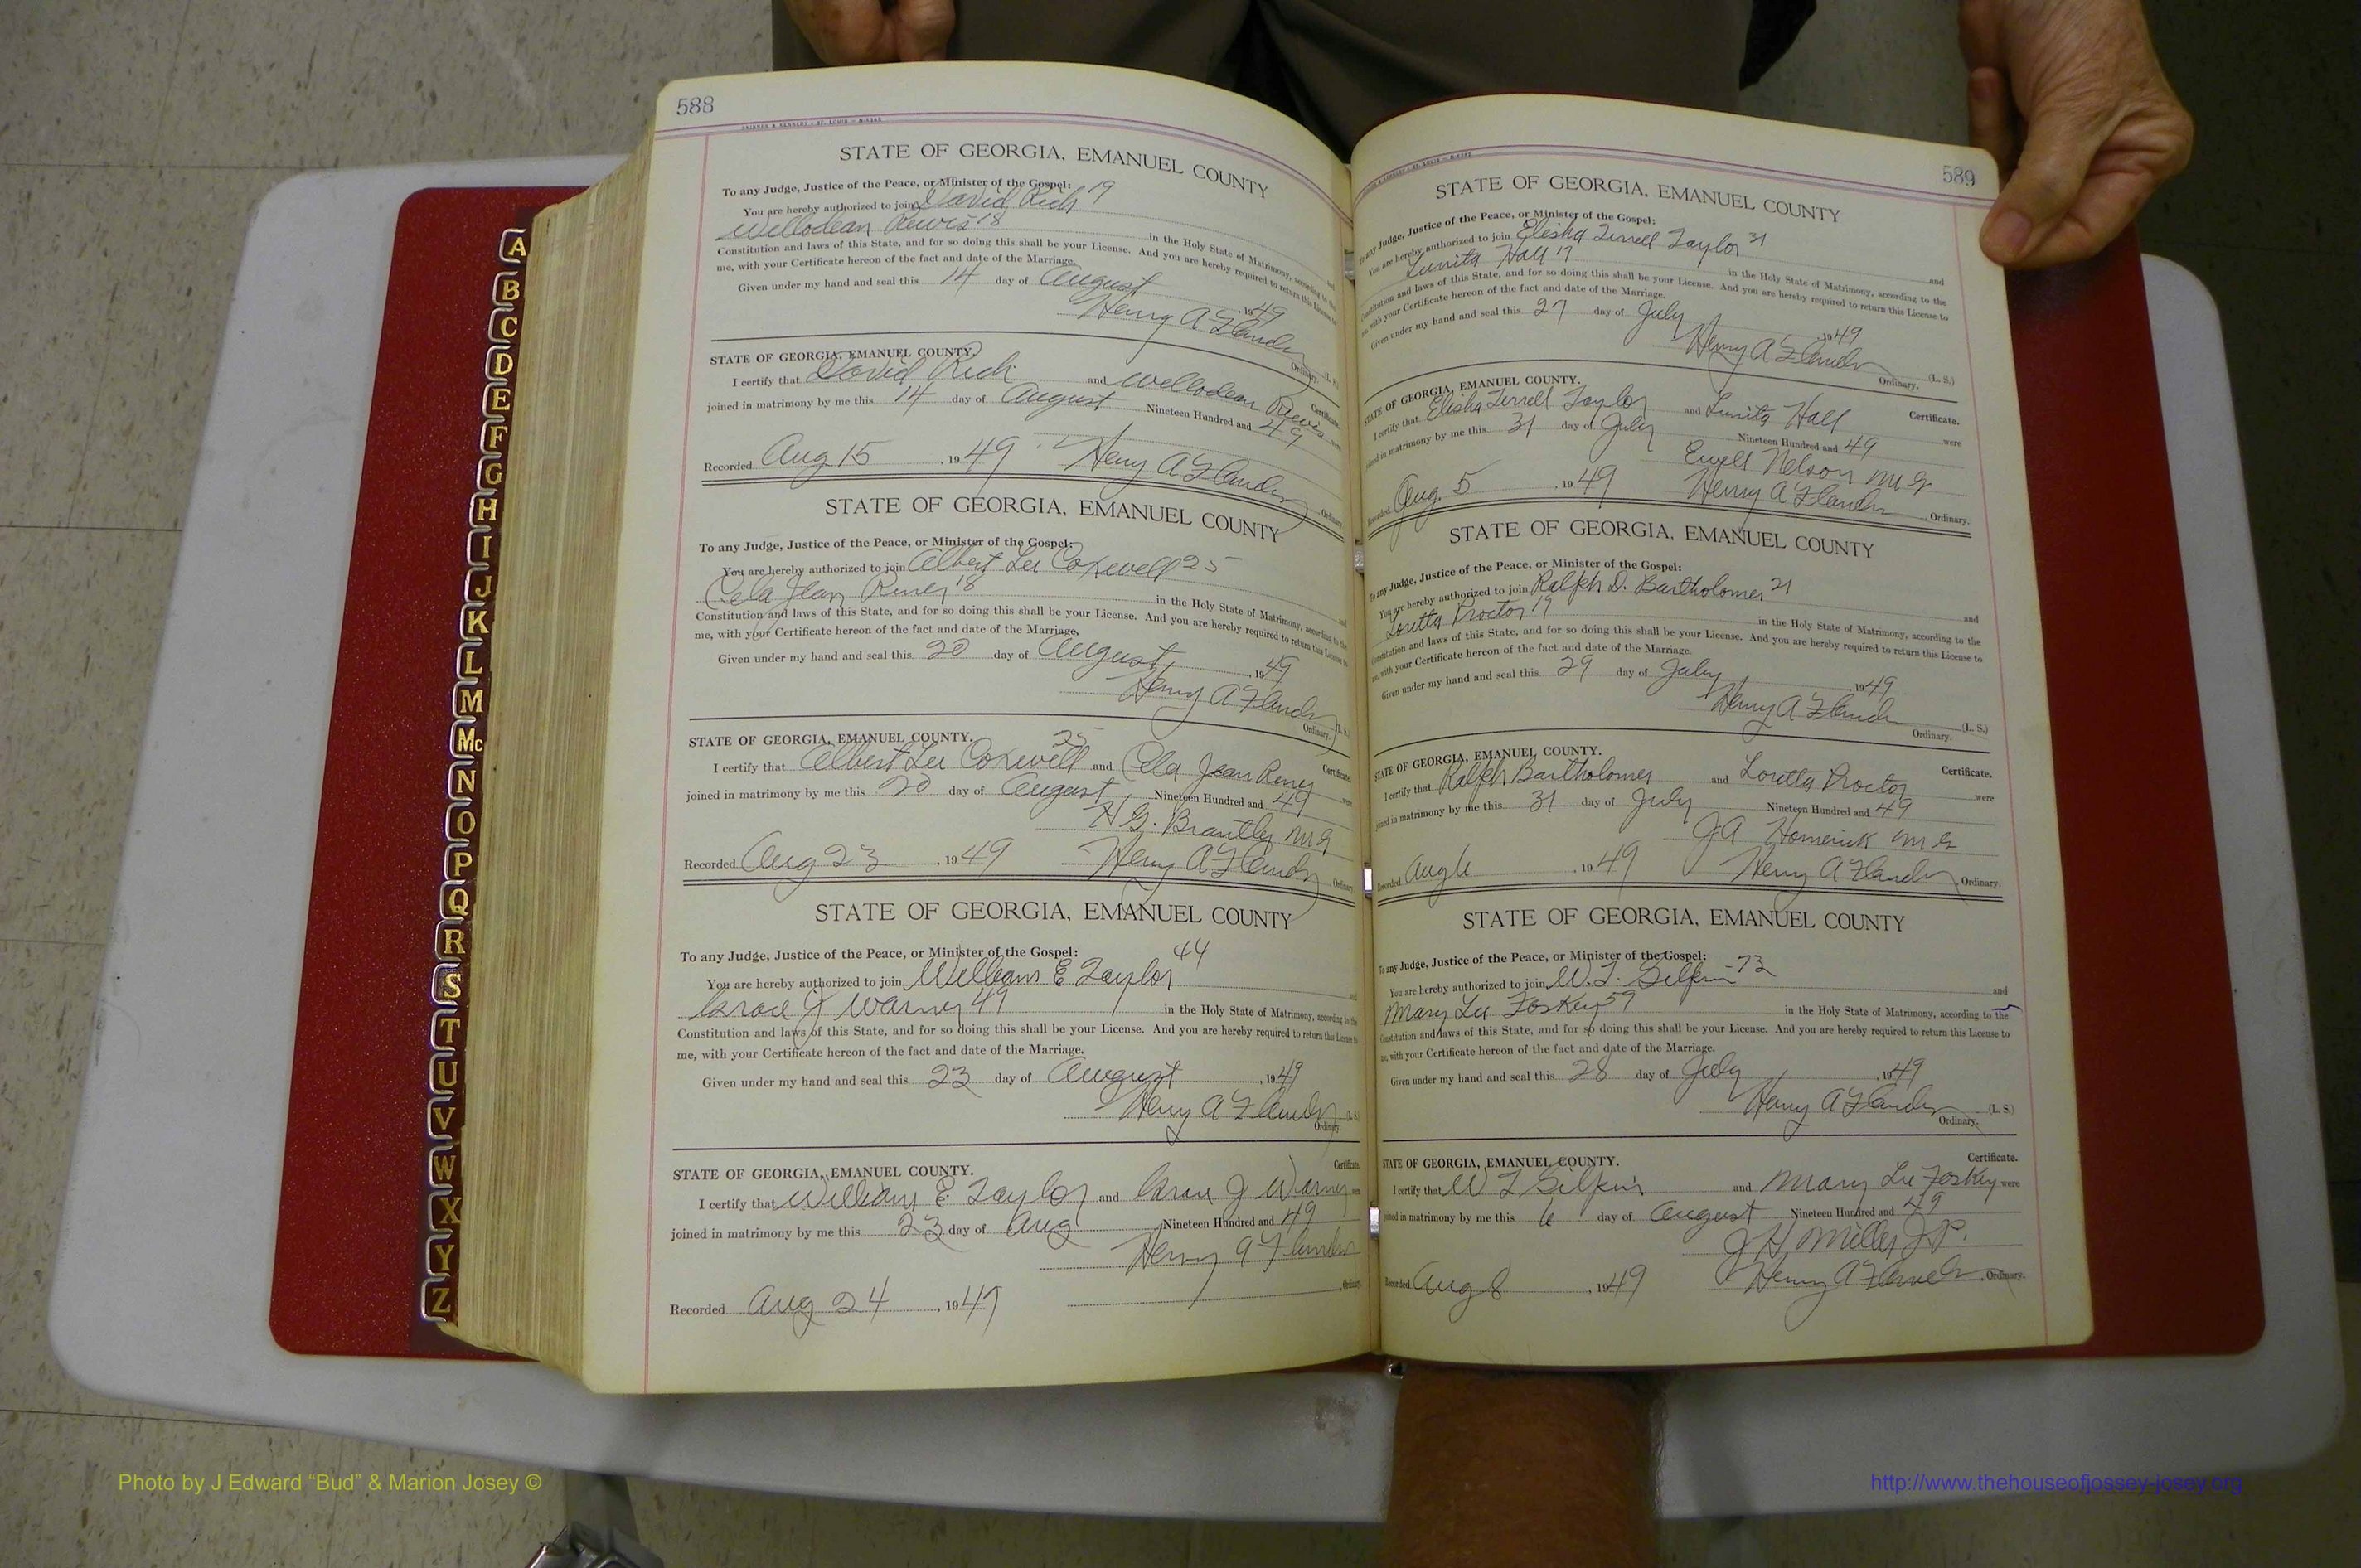 588
SKINNER & KENNEDY - ST. LOUIS
STATE OF GEORGIA, EMANUEL COUNTY
To any Judge, Justice of the Peace, or Minister of the Gospel:
You are hereby authorized to join David Rich 19
Willodean 18 in the Holy State of Matrimony, according to the
Constitution and laws of this State, and for so doing this shall be your License. And you are hereby required to return this License to
me, with your Certificate hereon of the fact and date of the Marriage.
Given under my hand and seal this 14 day of August, 1949
Henry A Flanders (L. S.)
Ordinary.
STATE OF GEORGIA, EMANUEL COUNTY. Certificate.
I certify that David Rich and Willodean were
joined in matrimony by me this 14 day of August Nineteen Hundred and 49
Recorded Aug 15, 1949 Henry A Flanders, Ordinary.
STATE OF GEORGIA, EMANUEL COUNTY
To any Judge, Justice of the Peace, or Minister of the Gospel:
You are hereby authorized to join Albert Lee Coxwell 25 and
Cela Jean 18 in the Holy State of Matrimony, according to the
Constitution and laws of this State, and for so doing this shall be your License. And you are hereby required to return this License to
me, with your Certificate hereon of the fact and date of the Marriage.
Given under my hand and seal this 20 day of August, 1949
Henry A Flanders (L. S.)
Ordinary.
STATE OF GEORGIA, EMANUEL COUNTY. 25 Certificate.
I certify that Albert Lee Coxwell and Cela Jean were
joined in matrimony by me this 20 day of August Nineteen Hundred and 49
H G. Brantley M G
Recorded Aug 23, 1949 Henry A Flanders, Ordinary.
STATE OF GEORGIA, EMANUEL COUNTY
To any Judge, Justice of the Peace, or Minister of the Gospel: 44
You are hereby authorized to join William E Taylor and
Grace J Warner 49 in the Holy State of Matrimony, according to the
Constitution and laws of this State, and for so doing this shall be your License. And you are hereby required to return this License to
me, with your Certificate hereon of the fact and date of the Marriage.
Given under my hand and seal this 23 day of August, 1949
Henry A Flanders (L. S.)
Ordinary.
STATE OF GEORGIA, EMANUEL COUNTY. Certificate.
I certify that William E. Taylor and Grace J Warner were
joined in matrimony by me this 23 day of Aug Nineteen Hundred and 49
Henry A Flanders
Recorded Aug 24, 1949, Ordinary.
589
STATE OF GEORGIA, EMANUEL COUNTY
To any Judge, Justice of the Peace, or Minister of the Gospel:
You are hereby authorized to join Elisha Terrell Taylor 31 and
Hall 17 in the Holy State of Matrimony, according to the
Constitution and laws of this State, and for so doing this shall be your License. And you are hereby required to return this License to
me, with your Certificate hereon of the fact and date of the Marriage.
Given under my hand and seal this 27 day of July, 1949
Henry A Flanders (L. S.)
Ordinary.
STATE OF GEORGIA, EMANUEL COUNTY. Certificate.
I certify that Elisha Terrell Taylor and Hall were
joined in matrimony by me this 31 day of July Nineteen Hundred and 49
Ewell Nelson M G
Recorded Aug. 5, 1949 Henry A Flanders, Ordinary.
STATE OF GEORGIA, EMANUEL COUNTY
To any Judge, Justice of the Peace, or Minister of the Gospel:
You are hereby authorized to join Ralph D. Bartholomer 21 and
Loretta Proctor 19 in the Holy State of Matrimony, according to the
Constitution and laws of this State, and for so doing this shall be your License. And you are hereby required to return this License to
me, with your Certificate hereon of the fact and date of the Marriage.
Given under my hand and seal this 29 day of July, 1949
Henry A Flanders (L. S.)
Ordinary.
STATE OF GEORGIA, EMANUEL COUNTY. Certificate.
I certify that Ralph Bartholomer and Loretta Proctor were
joined in matrimony by me this 31 day of July Nineteen Hundred and 49
J A M G
Recorded Aug 6, 1949 Henry A Flanders, Ordinary.
STATE OF GEORGIA, EMANUEL COUNTY
To any Judge, Justice of the Peace, or Minister of the Gospel:
You are hereby authorized to join 73 and
Mary Lee Foskey 59 in the Holy State of Matrimony, according to the
Constitution and laws of this State, and for so doing this shall be your License. And you are hereby required to return this License to
me, with your Certificate hereon of the fact and date of the Marriage.
Given under my hand and seal this 28 day of July, 1949
Henry A Flanders (L. S.)
Ordinary.
STATE OF GEORGIA, EMANUEL COUNTY. Certificate.
I certify that and Mary Lee Foskey were
joined in matrimony by me this 6 day of August Nineteen Hundred and 49
J H, Miller J. P.
Recorded Aug 8, 1949 Henry A Flanders, Ordinary.
A
B
C
D
E
F
G
H
I
J
K
L
M
Mc
N
O
P
Q
R
S
T
U
V
W
X
Y
Z
Photo by J Edward “Bud” & Marion Josey ©
http://www.thehouseofjossey-josey.org